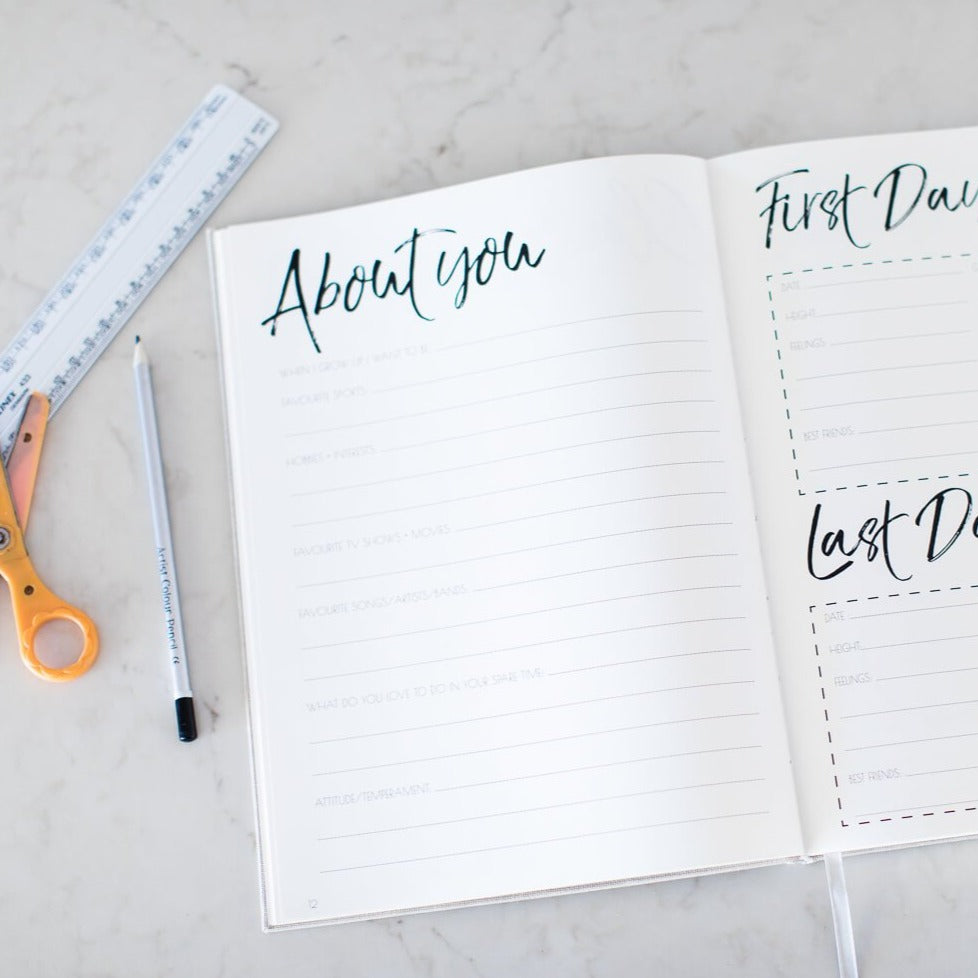 About you
WHEN I GROW UP I WANT TO BE
FAVOURITE SPORTS:
HOBBIES + INTERESTS:
FAVOURITE TV SHOWS + MOVIES:
FAVOURITE SONGS/ARTISTS/BANDS:
WHAT DO YOU LOVE TO DO IN YOUR SPARE TIME:
ATTITUDE/TEMPERAMENT:
12
First Day
DATE
HEIGHT:
FEELINGS:
BEST FRIENDS:
Last Da
DATE
HEIGHT:
FEELINGS:
BEST FRIENDS:
Artist Colour Pencil